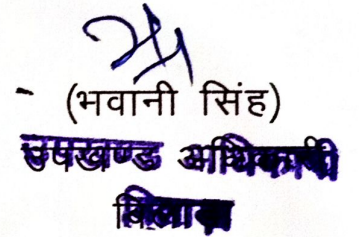 (भवानी सिंह)
उपखण्ड अधिकारी